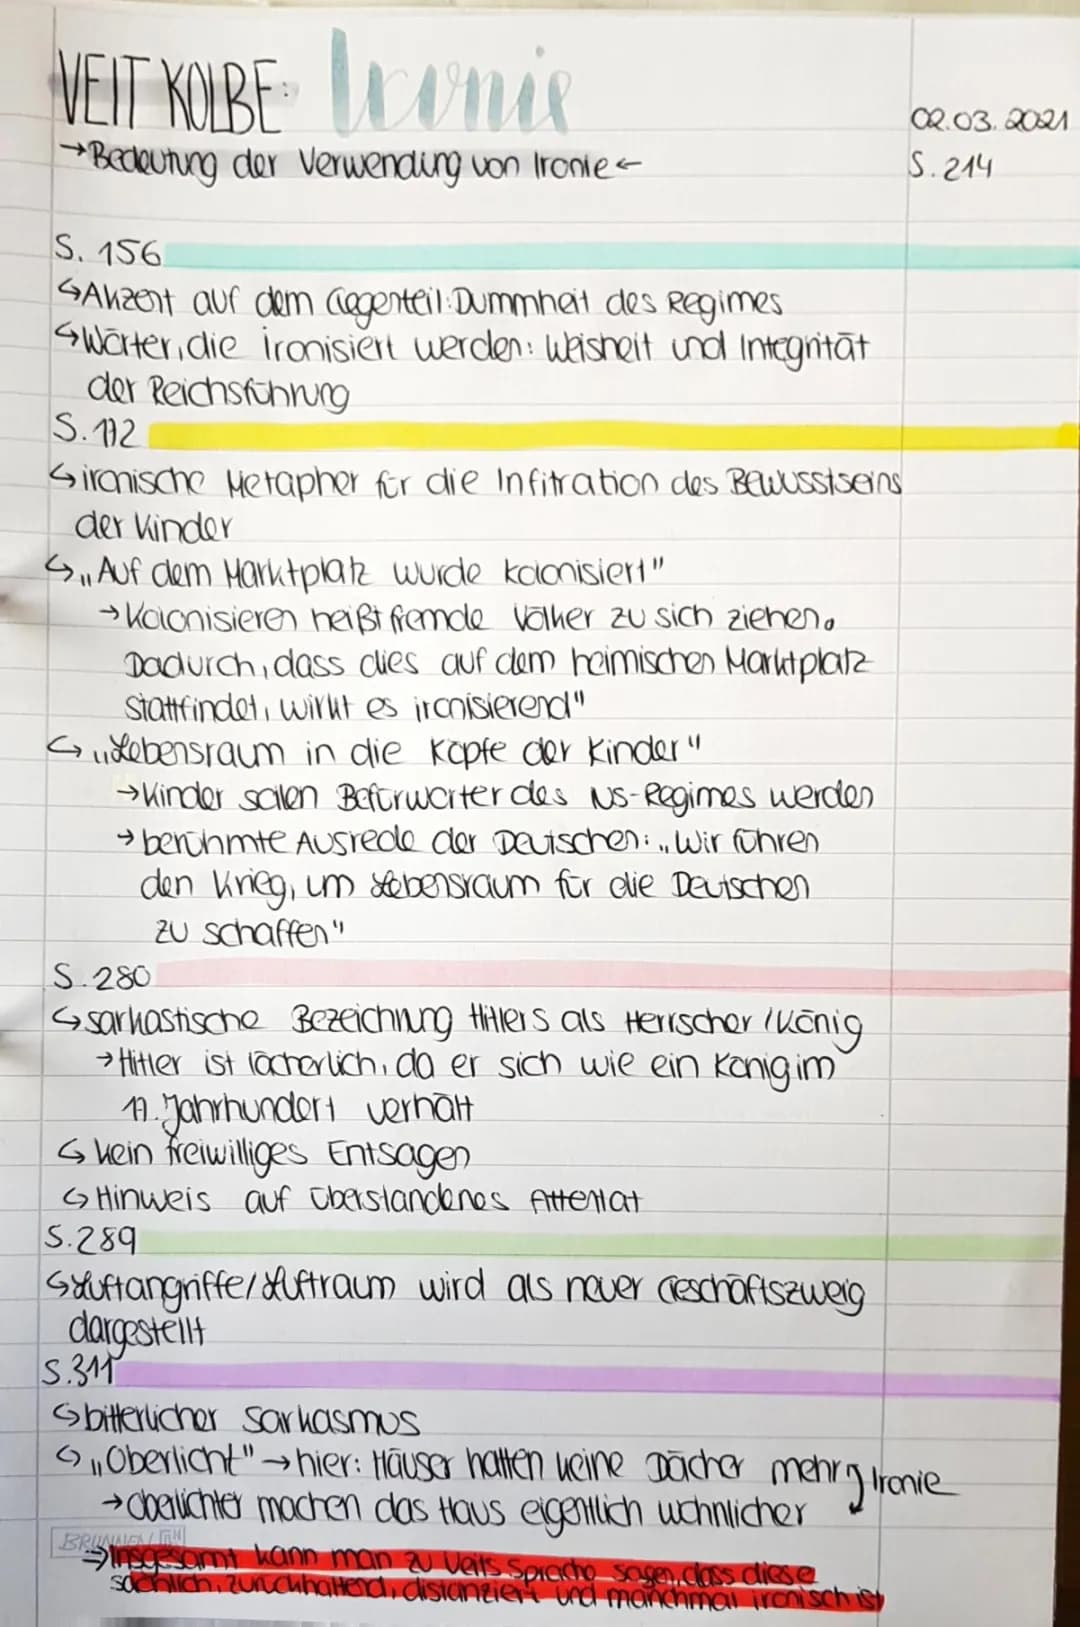 VEIT KOLBE: Ironie
02.03.2021
→Bedeutung der Verwendung von Ironie←
S. 214
S. 156
↳Akzent auf dem Gegenteil: Dummheit des Regimes
↳Wörter, die ironisiert werden: Weisheit und Integrität
der Reichsführung
S. 172
↳ironische Metapher für die Infitration des Bewusstseins
der Kinder
↳„Auf dem Marktplatz wurde kolonisiert"
→Kolonisieren heißt fremde Völker zu sich ziehen.
Dadurch, dass dies auf dem heimischen Marktplatz
stattfindet, wirkt es ironisierend"
↳„Lebensraum in die Köpfe der Kinder"
→Kinder sollen Befürworter des NS-Regimes werden
→berühmte Ausrede der Deutschen: „Wir führen
den Krieg, um Lebensraum für die Deutschen
zu schaffen"
S. 280
↳sarkastische Bezeichnung Hitlers als Herrscher/König
→Hitler ist lächerlich, da er sich wie ein König im
17. Jahrhundert verhält
↳kein freiwilliges Entsagen
↳Hinweis auf überstandenes Attentat
S. 289
↳Luftangriffe/Luftraum wird als neuer Geschäftszweig
dargestellt
S. 311
↳bitterlicher Sarkasmus
↳„Oberlicht"→hier: Häuser hatten keine Dächer mehr
Ironie
→Oberlichter machen das Haus eigentlich wohnlicher
BRUNNEN
⇒Insgesamt kann man zu Veits Sprache sagen, dass diese
sachlich, zurückhaltend, distanziert und manchmal ironisch ist